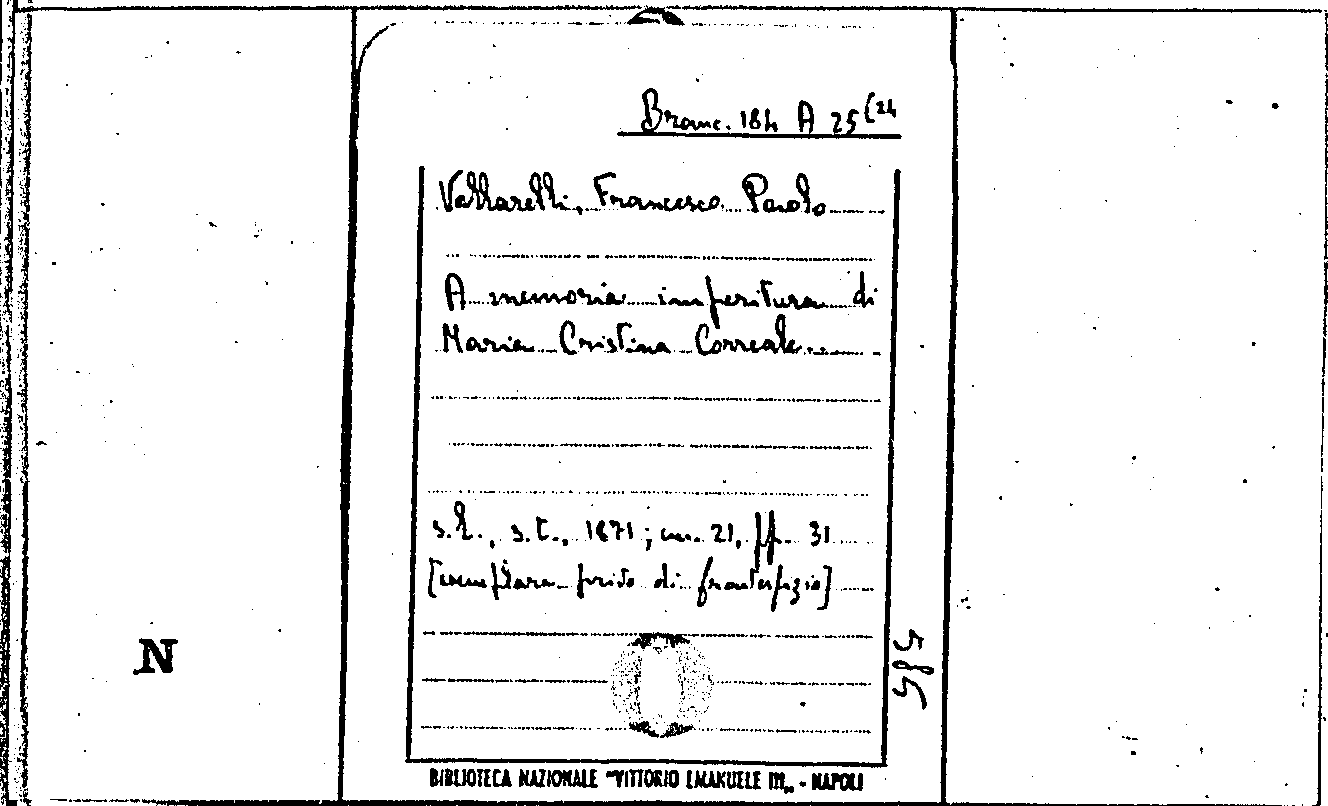 Branc. 184 A 25 (24
Francesco Paolo
A memoria imperitura di
Maria Cristina Correale..
s.l., s.t., 1871; cm. 21, pp. 31
[esemplare privo di frontespizio]
N
585
BIBLIOTECA NAZIONALE "VITTORIO EMANUELE III„ - NAPOLI